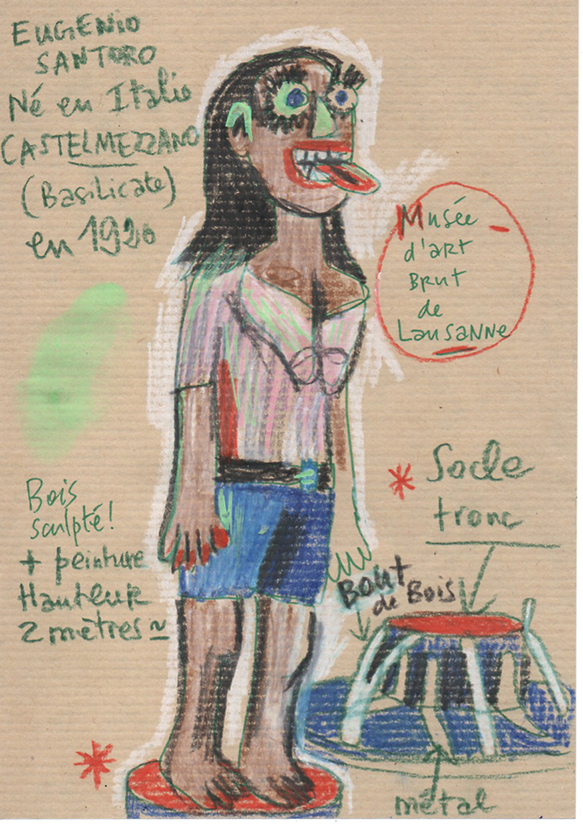 EUGENIO
SANTORO
Né en Italie
CASTELMEZZANO
(Basilicate)
en 1920
Musée
d'art
Brut
de
Lausanne
Bois
sculpté!
+ peinture
Hauteur
2 mètres ≃
* Socle
tronc
Bout
de Bois
*
métal